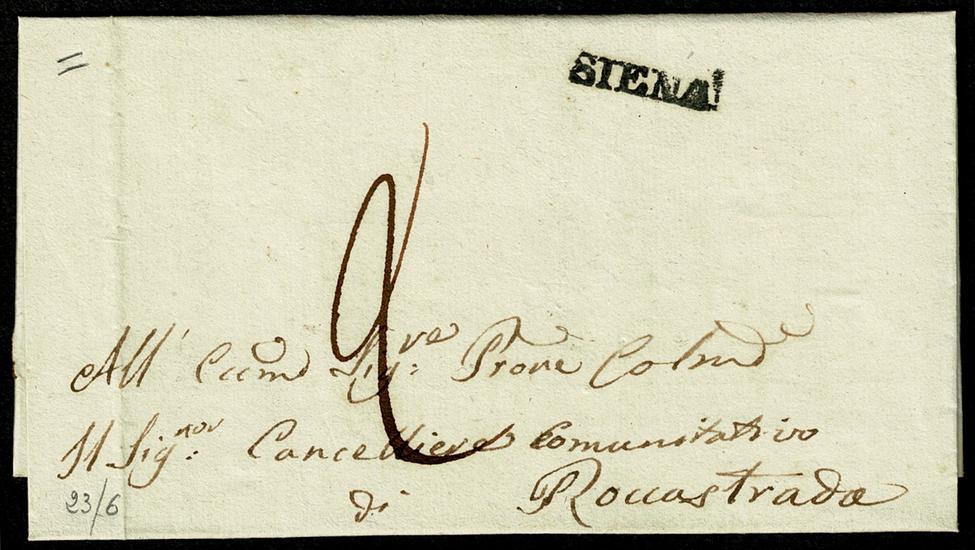 =
SIENA
2
All' Eccmo Sigre: Prone Colmo
Il Signor: Cancelliere Comunitativo
di Roccastrada
23/6